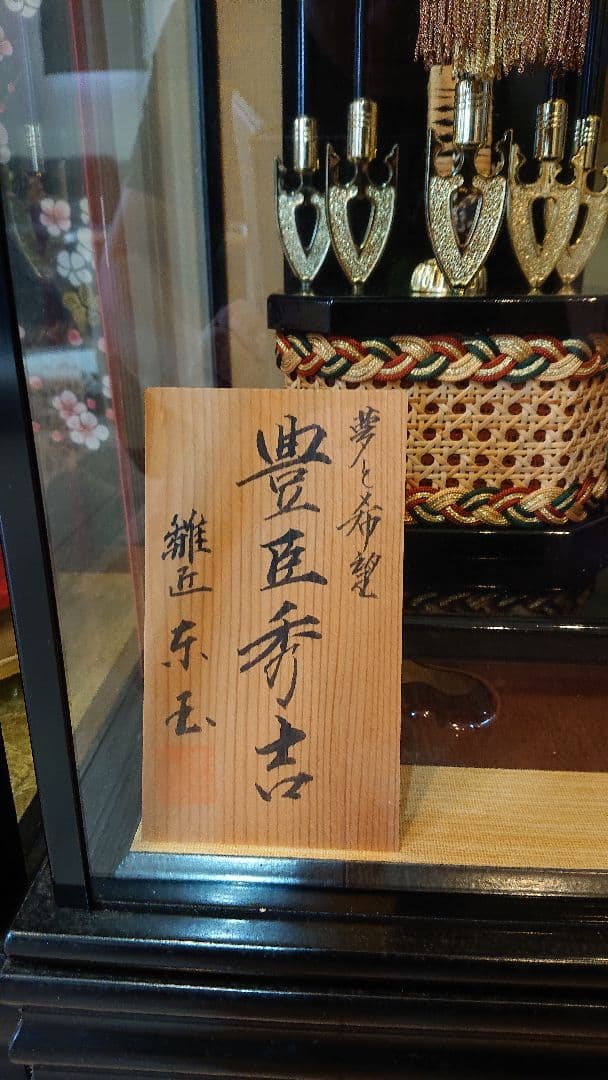 夢と希望
豊臣秀吉
雛匠 东玉